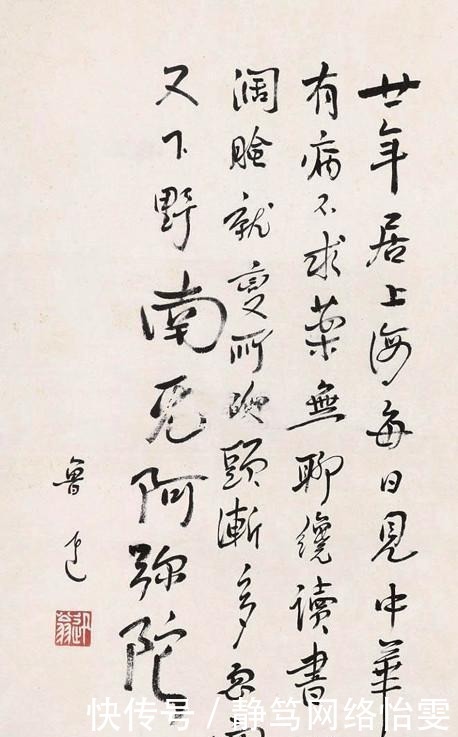 廿年居上海每日見中華
有病不求藥無聊纔讀書
濶臉就變所砍頭漸多忽
又下野南无阿弥陀
魯迅
快传号 / 静笃网络怡雯